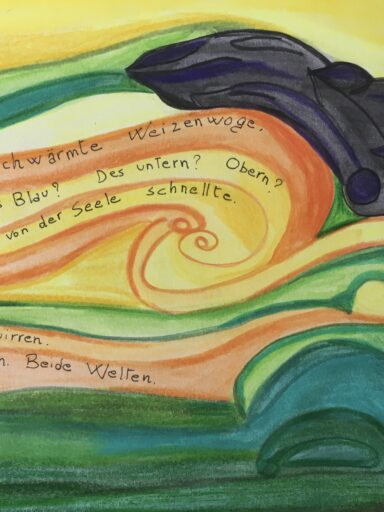 chwärmte Weizenwoge,
s Blau? Des untern? Obern?
von der Seele schnellte.
irren.
n. Beide Welten.